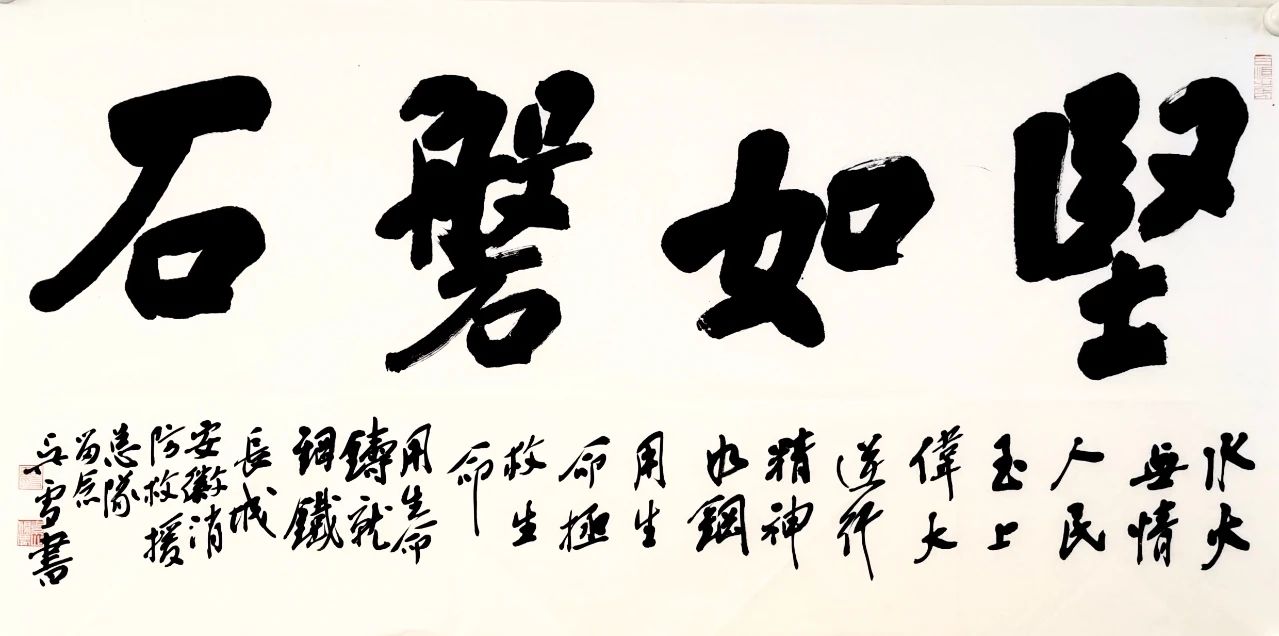 堅如磐石
水火
無情
人民
至上
偉大
逆行
精神
如鋼
用生
命拯
救生
命
用生命
鑄就
鋼鐵
長城
安徽消
防救援
总隊
留念
雪書